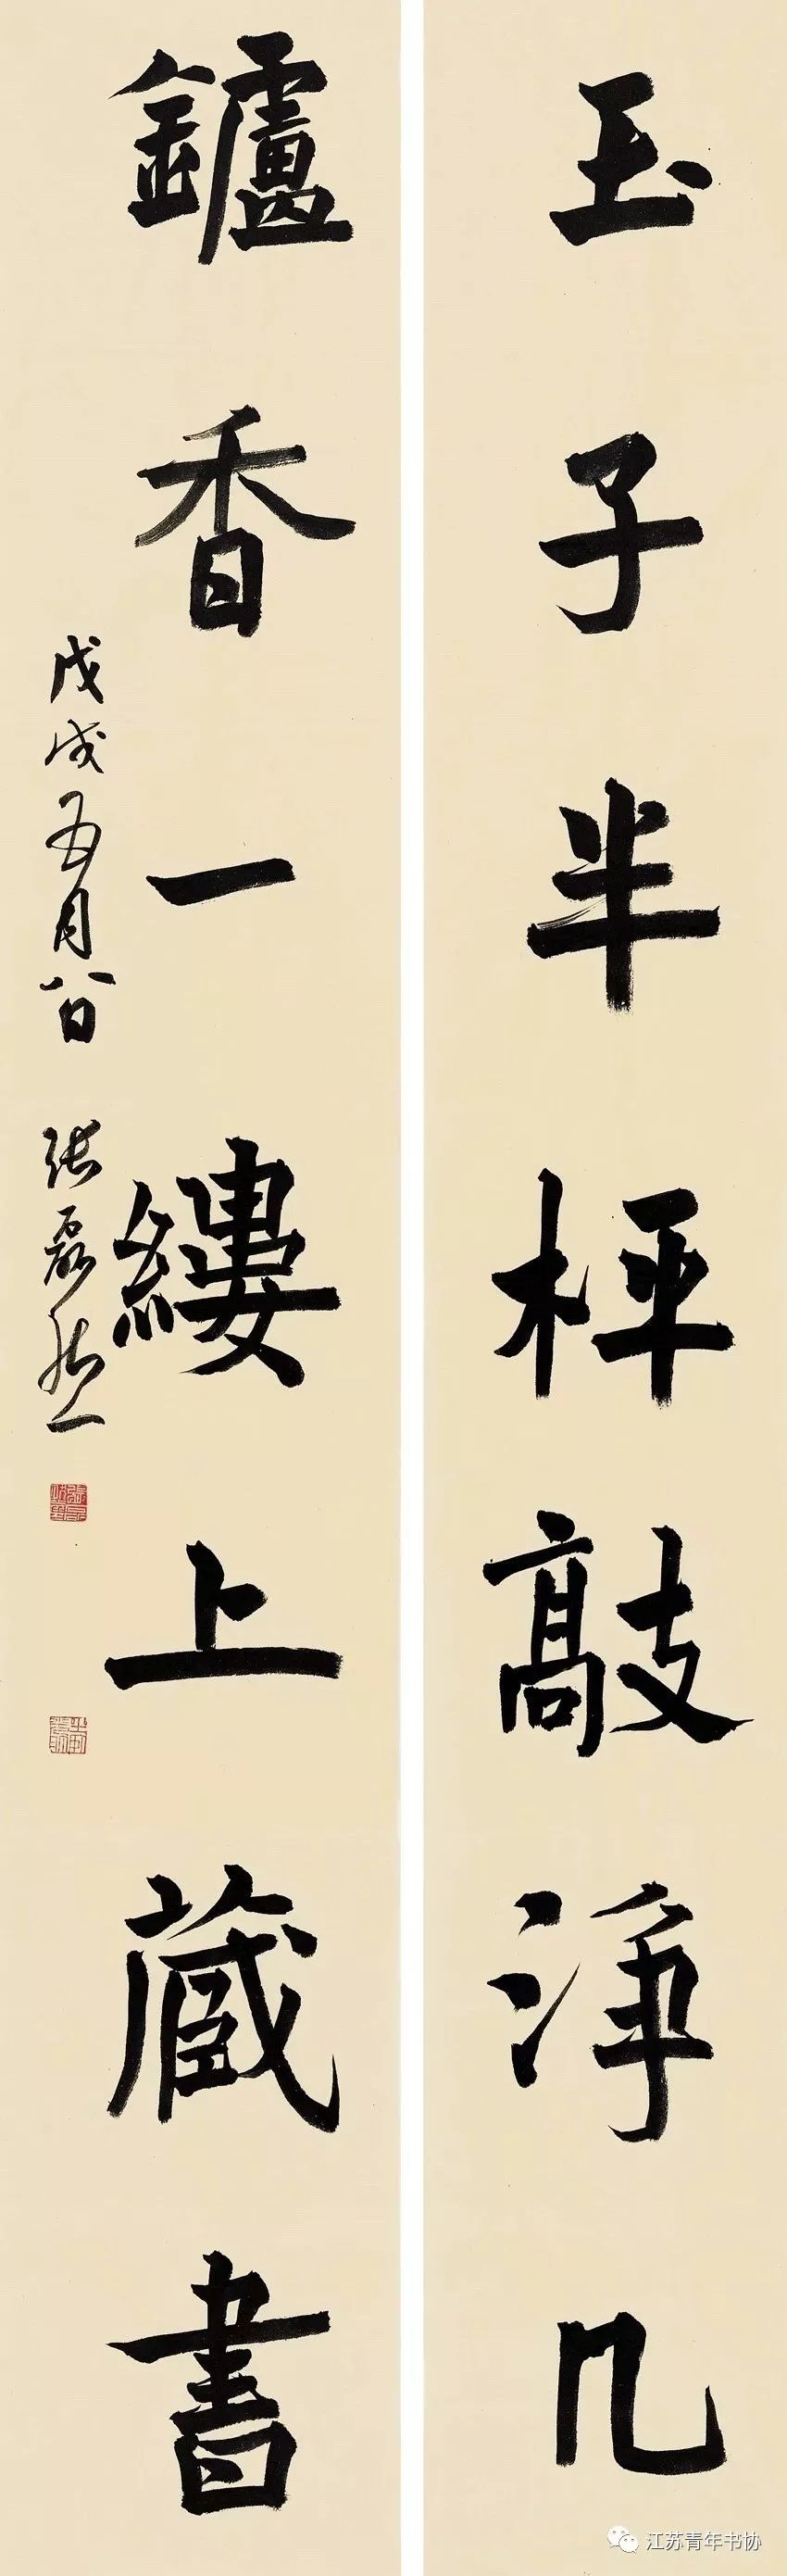 玉子半枰敲淨几
鑪香一縷上藏書
戊戌五月八日 張磊
江苏青年书协